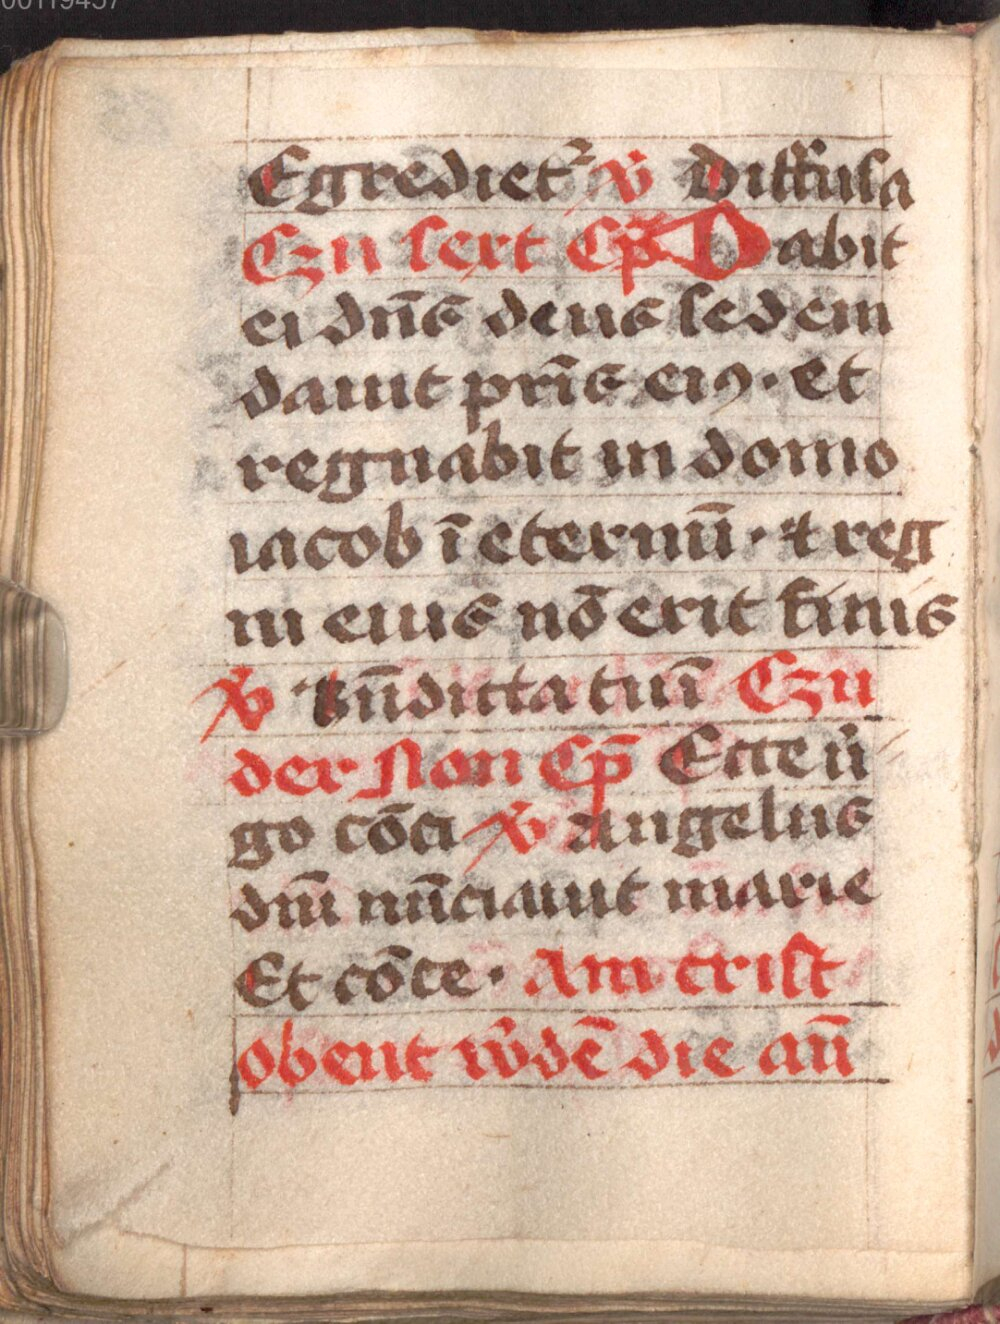 00119457
Egrediet᷑ ℣ Diffusa
Czu sext Cp̄ Dabit
ei dn̄s deus sedem
dauit pr̄is eiꝰ · et
regnabit in domo
iacob ī eternū · ⁊ reg
ni eius nō erit finis
℣ Bn̄dicta tu ī Czu
der Non Cp̄ Ecce v̾
go cōci ℣ angelus
dnī nūciauit marie
Et cōce · Am crist
obent w̾dē die an̄